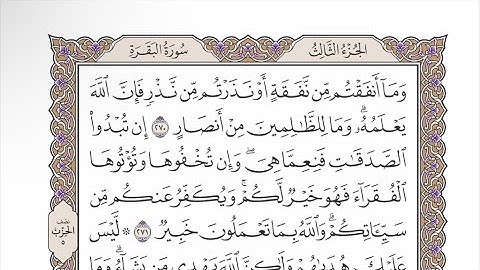 الجُزْءُ الثَّالِثُ
سُورَةُ البَقَرَةِ
وَمَآ أَنفَقْتُم مِّن نَّفَقَةٍ أَوْ نَذَرْتُم مِّن نَّذْرٍ فَإِنَّ ٱللَّهَ
يَعْلَمُهُۥۗ وَمَا لِلظَّٰلِمِينَ مِنْ أَنصَارٍ ٢٧٠ إِن تُبْدُوا۟
ٱلصَّدَقَٰتِ فَنِعِمَّا هِىَۖ وَإِن تُخْفُوهَا وَتُؤْتُوهَا
ٱلْفُقَرَآءَ فَهُوَ خَيْرٌ لَّكُمْۚ وَيُكَفِّرُ عَنكُم مِّن
سَيِّـَٔاتِكُمْۗ وَٱللَّهُ بِمَا تَعْمَلُونَ خَبِيرٌ ٢٧١ ۞ لَّيْسَ
عَلَيْكَ هُدَىٰهُمْ وَلَٰكِنَّ ٱللَّهَ يَهْدِى مَن يَشَآءُۗ وَمَا
نِصْفُ
الحِزْبِ
٥